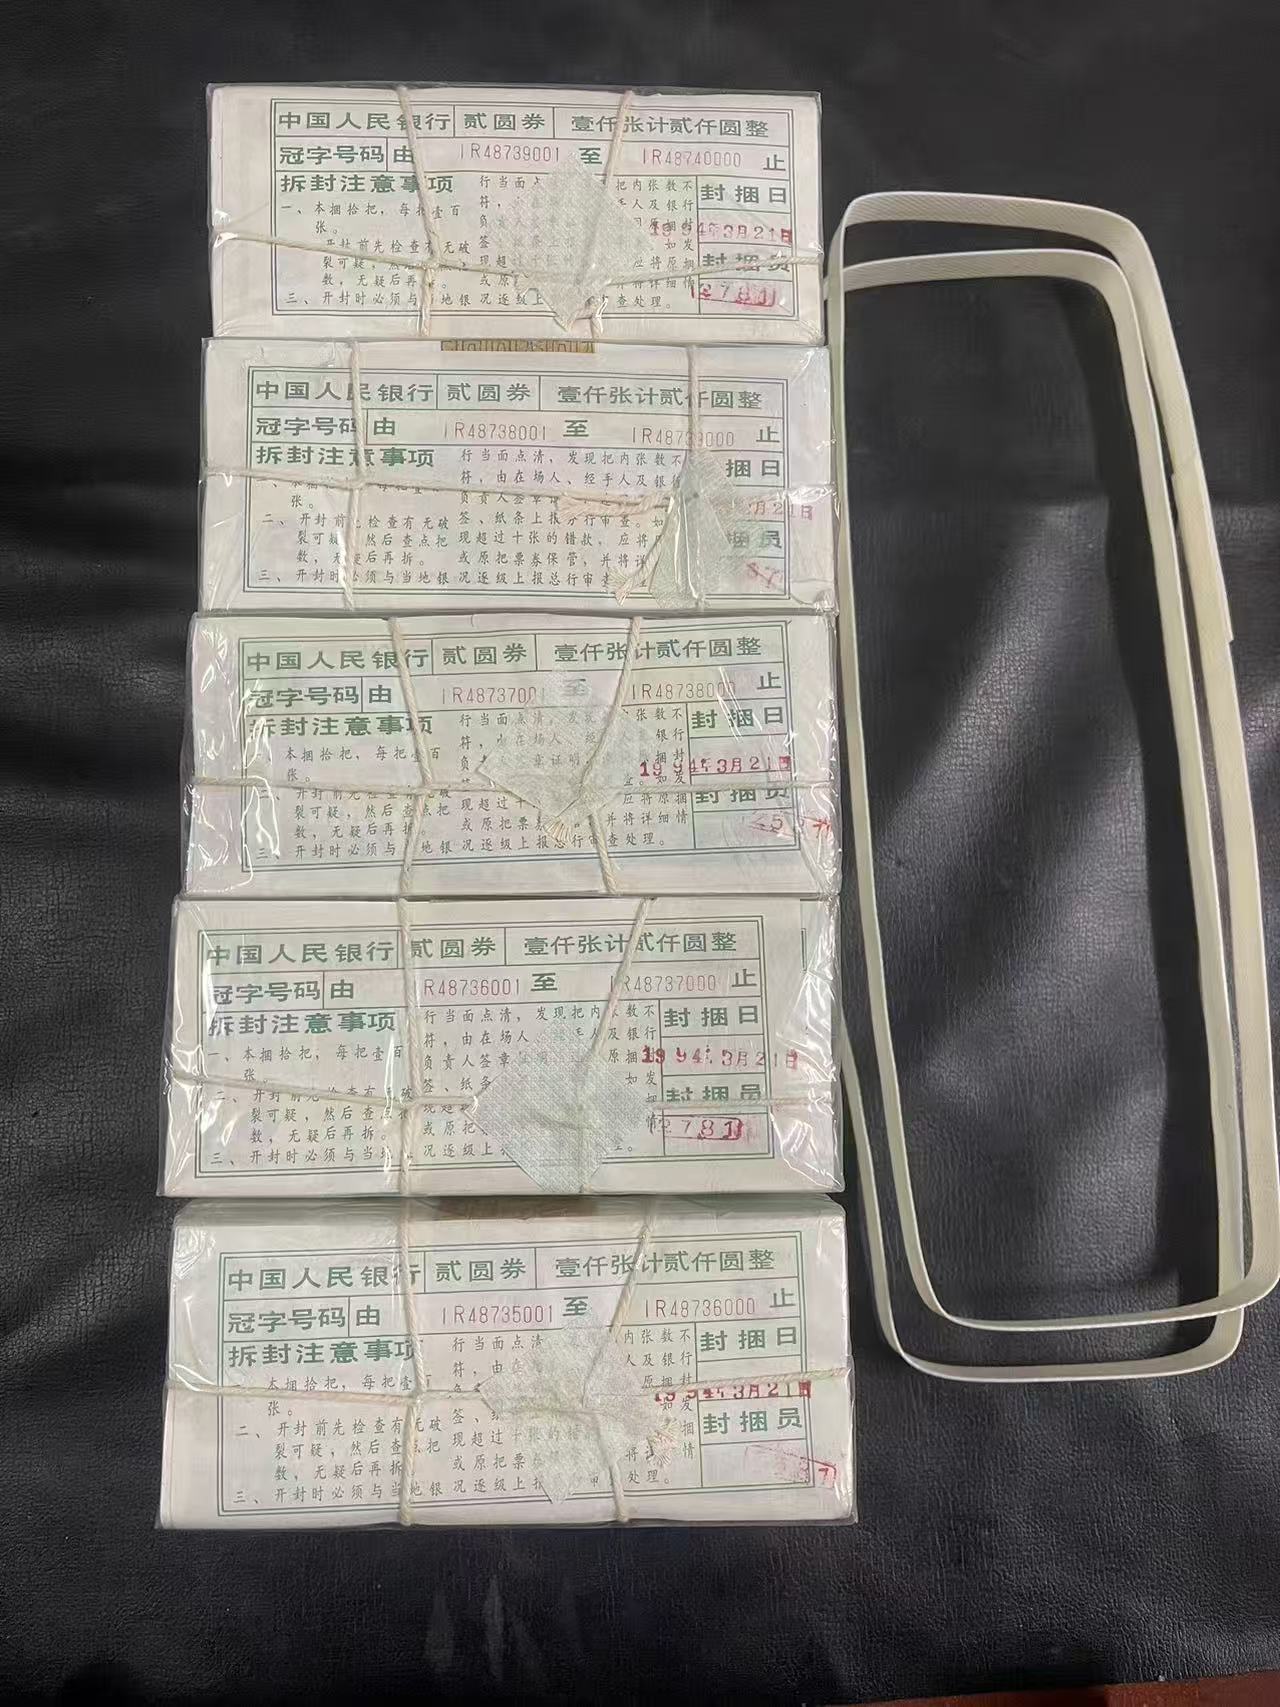 中国人民银行 贰圆券 壹仟张计贰仟圆整
冠字号码 由 IR48739001 至 IR48740000 止
拆封注意事项 封捆日
一、本捆拾把，每把壹百
张。
开封前先检查有无破
裂可疑，
数，无疑后再
三、开封时必须与 地银
行当面点 把内张数不
符， 人及银行
负 原捆封
签、 如发
现超过十张 应将原捆
或原 并将详细情
况逐级上 查处理。
1994年3月21日
封捆员
2781
中国人民银行 贰圆券 壹仟张计贰仟圆整
冠字号码 由 IR48738001 至 IR48739000 止
拆封注意事项 捆日
一、本捆拾把，每把壹百
张。
二、开封前先检查有无破
裂可疑，然后查点把
数，无疑后再拆。
三、开封时必须与当地银
行当面点清，发现把内张数不
符，由在场人、经手人及银
负责人签章
签、纸条上报分行审查。如
现超过十张的错款，应将
或原把票券保管，并将详
况逐级上报总行审查
月21日
捆员
中国人民银行 贰圆券 壹仟张计贰仟圆整
冠字号码 由 IR48737001 至 IR48738000 止
拆封注意事项 封捆日
一、本捆拾把，每把壹百
张。
二、开封前先检查有无破
裂可疑，然后查点把
数，无疑后再拆。
三、开封时必须与当地银
行当面点清，发现 张数不
符，由在场人、经 银行
负 章证明 捆封
如发
现超过十 应将原捆
或原把票券 并将详细情
况逐级上报总行审查处理。
1994年3月21日
封捆员
中国人民银行 贰圆券 壹仟张计贰仟圆整
冠字号码 由 IR48736001 至 IR48737000 止
拆封注意事项 封捆日
一、本捆拾把，每把壹百
张。
二、开封前先检查有无破
裂可疑，然后查点
数，无疑后再拆。
三、开封时必须与当地
行当面点清，发现把内张数不
符，由在场人、经手人及银行
负责人签章证明 原捆
签、纸条 如发
现超
或原把 情
况逐级上报
1994年3月21日
封捆员
2781
中国人民银行 贰圆券 壹仟张计贰仟圆整
冠字号码 由 IR48735001 至 IR48736000 止
拆封注意事项 封捆日
一、本捆拾把，每把壹百
张。
二、开封前先检查有无破
裂可疑，然后查点把
数，无疑后再拆。
三、开封时必须与当地银
行当面点清 内张数不
符，由在 人及银行
原捆封
签、 如发
现超过十张的错 捆
或原把票券 将详 情
况逐级上报 处理。
1994年3月21日
封捆员